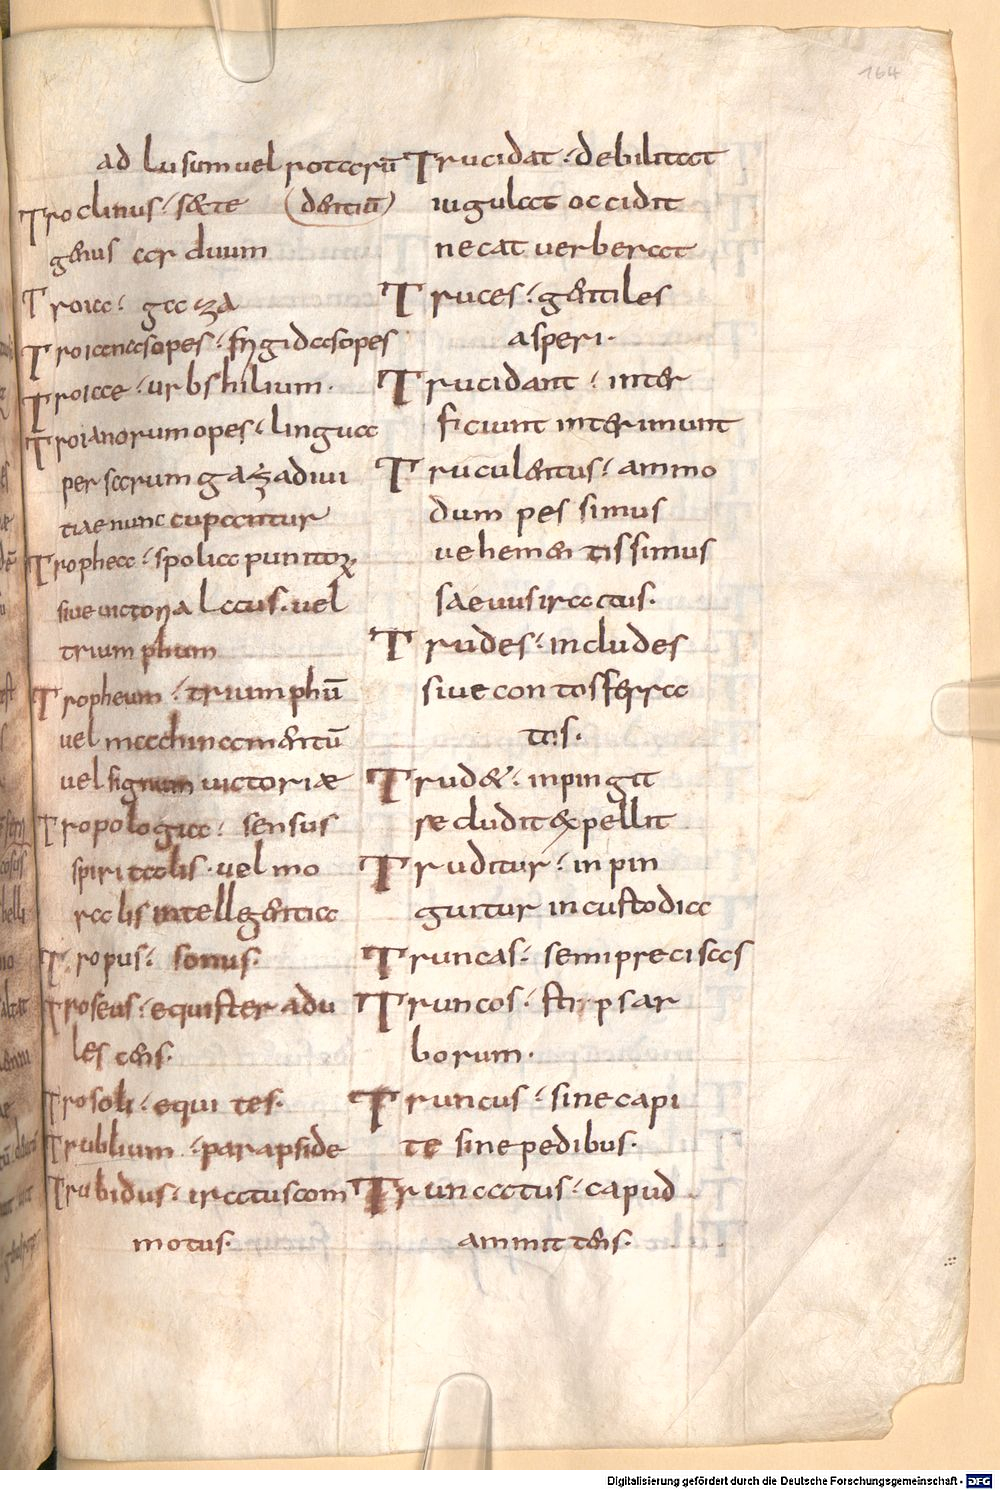 164
ad lusum uel rotarū
Troclinus : sæte (dentiū)
genus carduum
Troia : gaza
Troianas opes : frigidas opes
Troiae : urbs hilium.
Troianorum opes : lingua
persarum gaza diui
tiae nunc cupantur
Trophea : spolia punitorꝝ
siue uictoria laus. uel
triumphum
Tropheum : triumphū
uel machinamentū
uel signum uictoriæ
Tropologica : sensus
spiritalis. uel mo
ralis intellegentia
Tropus : sonus.
Troseus : equister adu
lescens.
Trosoli : equites.
Trublium : parapside
Trubidus : iratus com
motus.
Trucidat : debilitat
iugulat occidit
necat uerberat
Truces : gentiles
asperi.
Trucidant : inter
ficiunt interimunt
Truculentus : ammo
dum pessimus
uehementissimus
saeuus iratus.
Trudes : includes
siue contos ferra
tos.
Trudet : inpingit
recludit expellit
Truditur : inpin
guitur in custodia
Truncas : semiprecisas
Truncos : stirps ar
borum.
Truncus : sine capi
te sine pedibus.
Truncatus : capud
ammittens.
Digitalisierung gefördert durch die Deutsche Forschungsgemeinschaft - DFG